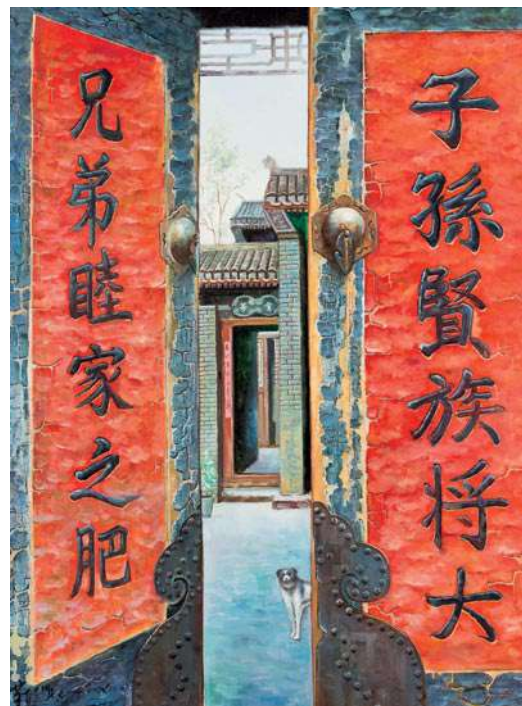 子孫賢族将大
兄弟睦家之肥